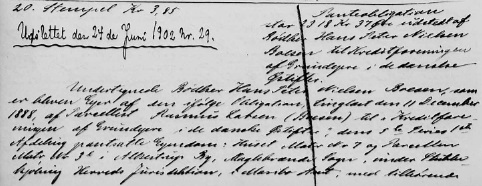 20. Stempel Kr 3,85
Udslettet den 24de Juni 1902 Nr. 29.
Panteobligation
stor 2318 Kr 37 Øre udstedt af
Bødker Hans Peter Nielsen
Boesen til Kreditforeningen
af Grundejere i de danske
Undertegnede Bødker Hans Peter Nielsen Boesen, som
er bleven Ejer af den ifølge Obligation, tinglæst den 11 December
1888, af Parcellist Rasmus Larsen til Kreditfore-
ningen af Grundejere i de danske i dens 5te Series 1ste
Afdeling pantsatte Ejendom: Huset Matr № 7 og Parcellen
Matr № 3 i By, Sogn, under
Herreds Jurisdiktion, Amt, med tilhørende